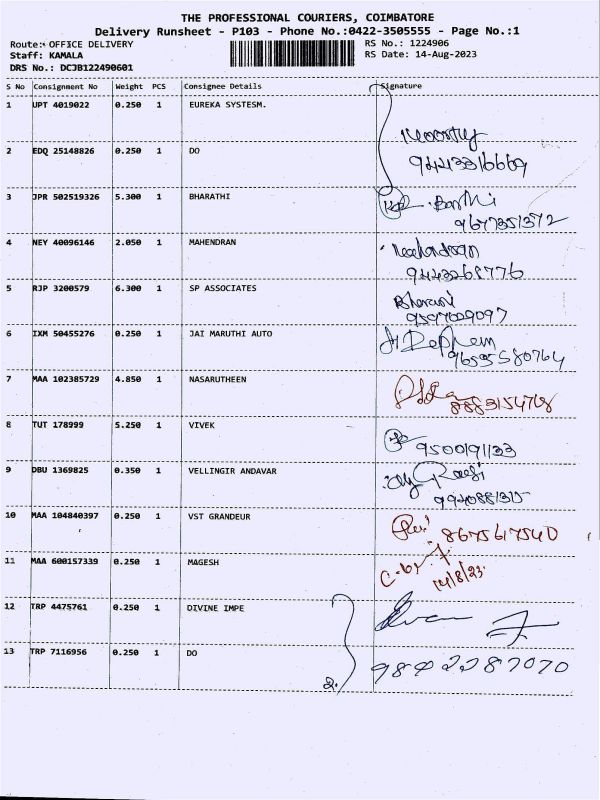 THE PROFESSIONAL COURIERS, COIMBATORE
Delivery Runsheet - P103 - Phone No.:0422-3505555 - Page No.:1
Route: OFFICE DELIVERY RS No.: 1224906
Staff: KAMALA RS Date: 14-Aug-2023
DRS No.: DCJB122490601
S No Consignment No Weight PCS Consignee Details Signature
1 UPT 4019022 0.250 1 EUREKA SYSTESM.
2 EDQ 25148826 0.250 1 DO
3 JPR 502519326 5.300 1 BHARATHI
9677351372
4 NEY 40096146 2.050 1 MAHENDRAN
9443268776
5 RJP 3200579 6.300 1 SP ASSOCIATES
9597609097
6 IXM 50455276 0.250 1 JAI MARUTHI AUTO
9659580764
7 MAA 102385729 4.850 1 NASARUTHEEN
8 TUT 178999 5.250 1 VIVEK
9500191133
9 DBU 1369825 0.350 1 VELLINGIR ANDAVAR
10 MAA 104840397 0.250 1 VST GRANDEUR
8675617540
11 MAA 600157339 0.250 1 MAGESH
14/8/23
12 TRP 4475761 0.250 1 DIVINE IMPE
13 TRP 7116956 0.250 1 DO
2. 9842287070